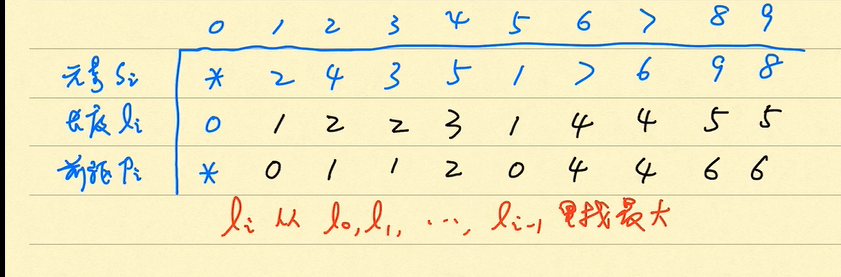 0 1 2 3 4 5 6 7 8 9
元素 Si * 2 4 3 5 1 7 6 9 8
长度 li 0 1 2 2 3 1 4 4 5 5
前驱 Pi * 0 1 1 2 0 4 4 6 6
li 从 l0, l1, ..., li-1 里找最大